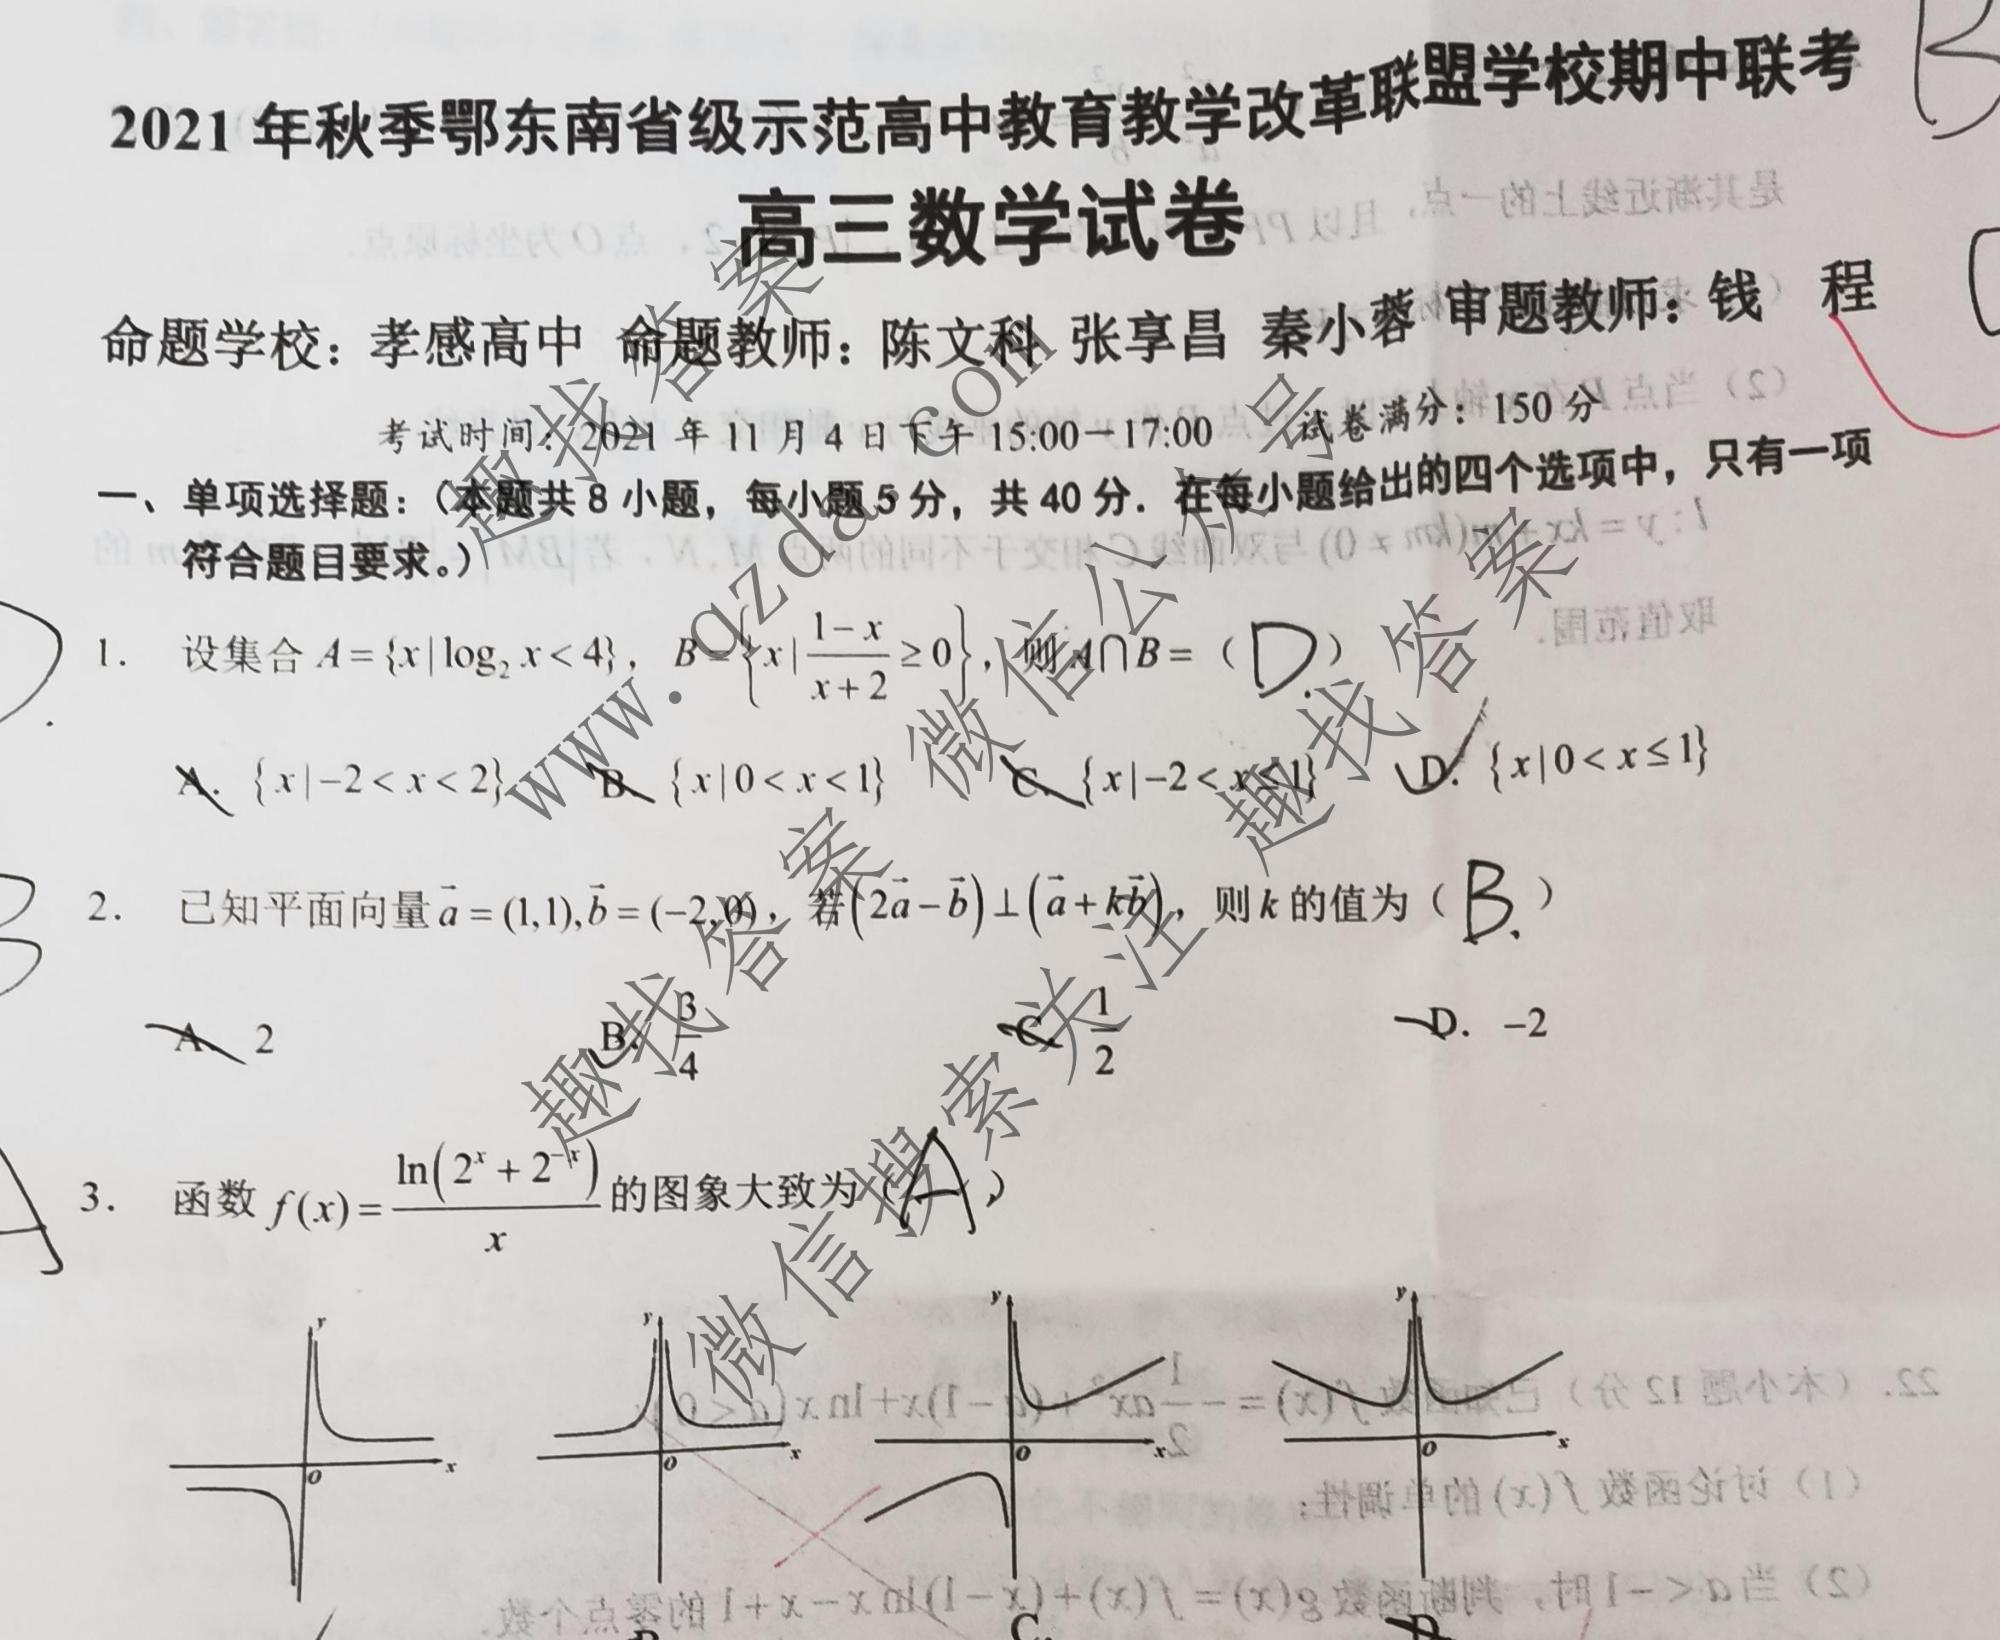 2021年秋季鄂东南省级示范高中教育教学改革联盟学校期中联考
高三数学试卷
命题学校：孝感高中 命题教师：陈文科 张享昌 秦小蓉 审题教师：钱 程
考试时间：2021年11月4日下午15:00－17:00 试卷满分：150分
一、单项选择题：（本题共8小题，每小题5分，共40分．在每小题给出的四个选项中，只有一项
符合题目要求。）
1. 设集合 A={x|log₂ x<4}，B={x|(1−x)/(x+2)≥0}，则 A∩B=（ D. ）
A. {x|−2<x<2} B. {x|0<x<1} C. {x|−2<x≤1} D. {x|0<x≤1}
2. 已知平面向量 a⃗=(1,1),b⃗=(−2,0)，若(2a⃗−b⃗)⊥(a⃗+kb⃗)，则k的值为（ B. ）
A. 2 B. 3/4 C. 1/2 D. −2
3. 函数 f(x)=ln(2ˣ+2⁻ˣ)/x 的图象大致为（ A ）
y x O y x O y x O y x O
B C. D
趣找答案
www.qzda.com
微信公众号
趣找答案
趣找答案
微信搜索关注